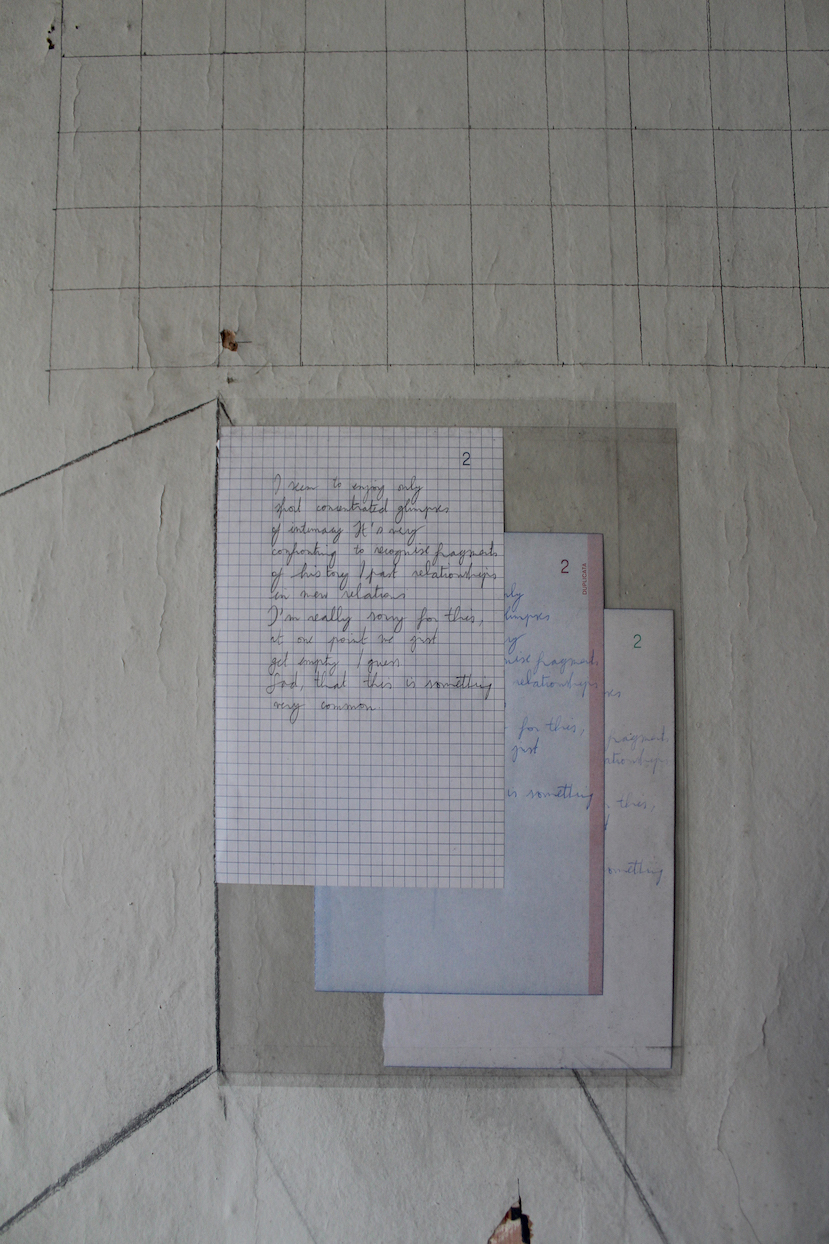 2
I seem to enjoy only
short concentrated glimpses
of intimacy It's very
confronting to recognise fragments
of history / past relationships
in new relations
I'm really sorry for this,
at one point we just
get empty I guess
Sad, that this is something
very common
2
DUPLICATA
nly
limpses
ry
nise fragments
relationships
for this,
just
is something
2
es
fragments
ationships
this,
omething